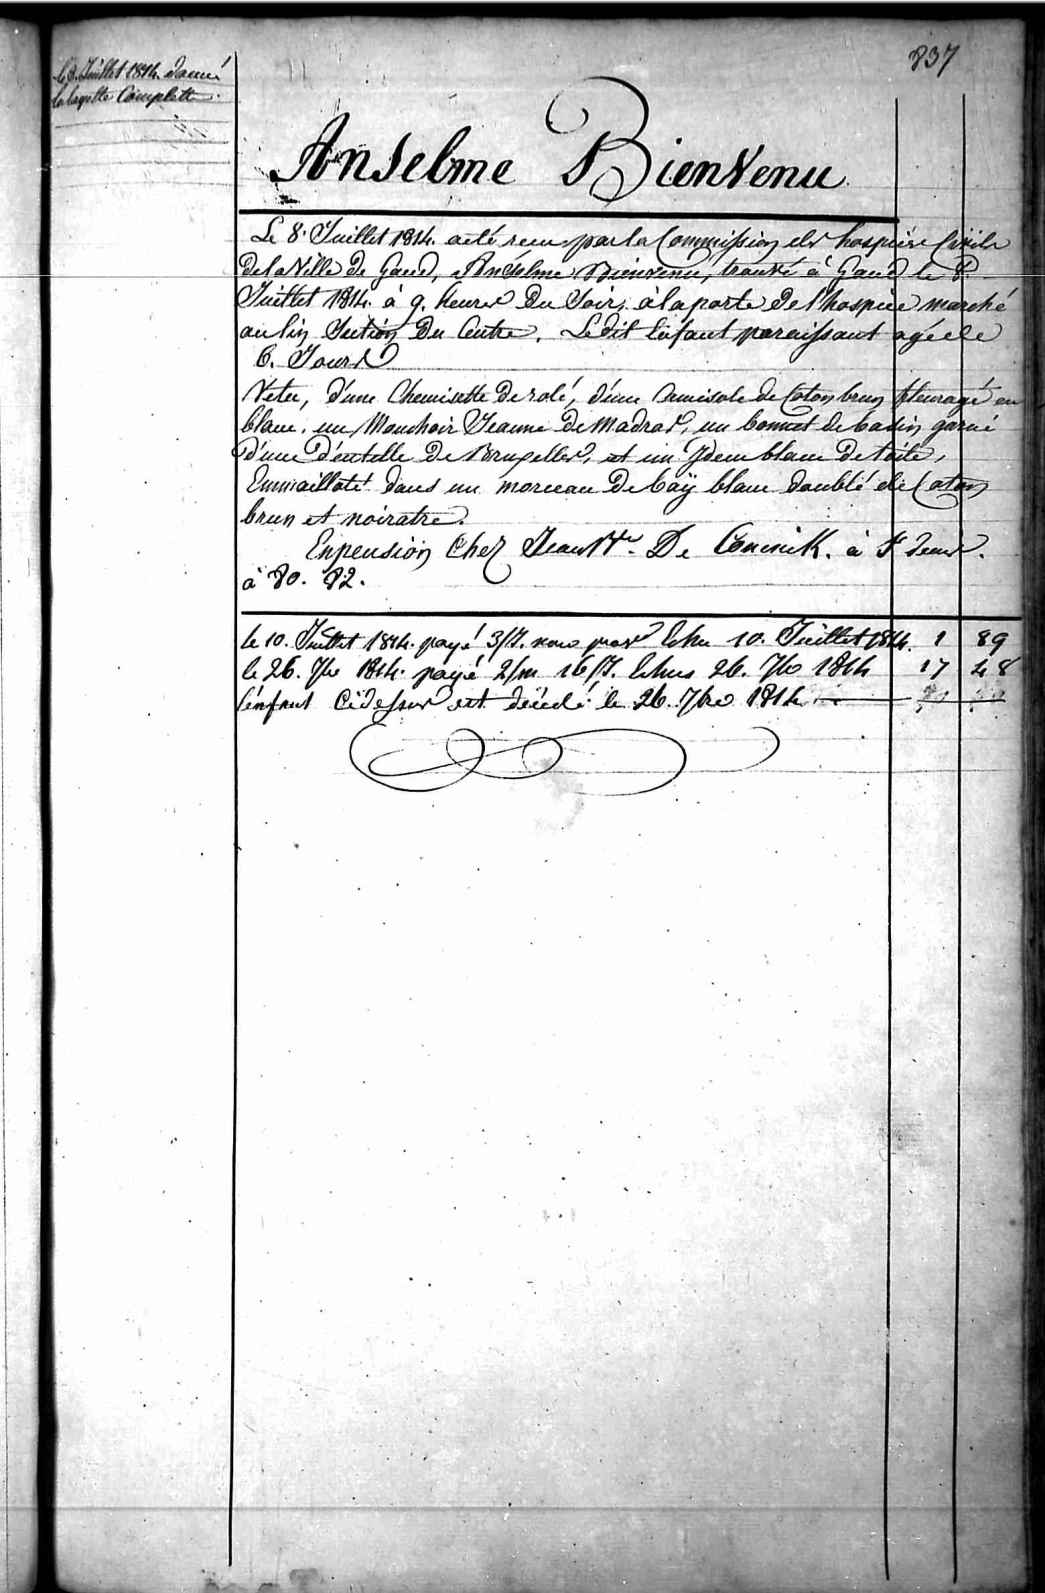 837
le 8. Juillet 1814. donné
la layette Complette.
Anselme Bienvenu
Le 8. Juillet 1814. a été recu par la Commission des hospices Civils
de la Ville de Gand, Anselme Bienvenu, trouvé à Gand le 8
Juillet 1814. à 9. heures Du Soir, à la porte De l'hospice marché
au lin Section Du Centre. Le dit Enfant paraissant agé de
6. Jours
Vetu, d'une Chemisette de d'une Camisole de Coton brun fleuragé en
blanc, un Mouchoir Jeaune De Madras, un bonnet de basin garni
d'une D'entelle De Bruxelles, et un Ydem blanc De toile,
Emmailloté dans un morceau De baÿ blanc doublé de Coton
brun et noiratre.
En pension Chez Jean De à St denis.
à 80. 82.
le 10. Juillet 1814. payé 3/ Echu 10. Juillet 1814. 1 89
le 26. 7bre 1814. payé 2/m 16/ Echus 26. 7b 1814 17 48
l'enfant Cidessus est décédé le 26. 7bre 1814